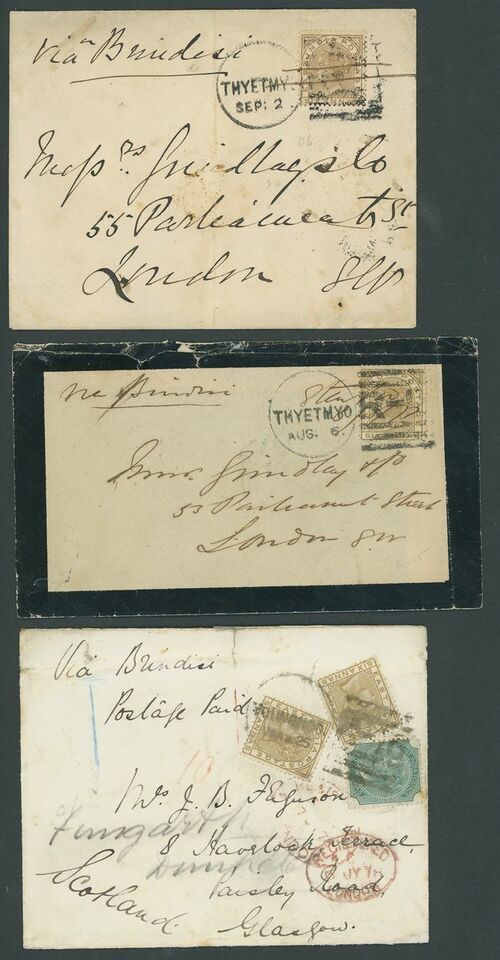 via Brindisi
INDIA POSTAGE
THYETMYO
SEP: 2
Messrs Grindlay & Co
55 Parliament St
London SW
via Brindisi
THYETMYO
AUG. 6.
SIX ANNAS
Messrs Grindlay & Co
55 Parliament Street
London SW
Via Brindisi
Postage Paid
SIX ANNAS
10
Mrs J. B. Ferguson
8 Havelock Terrace,
Paisley Road,
Glasgow.
Scotland.
REGISTERED
LONDON